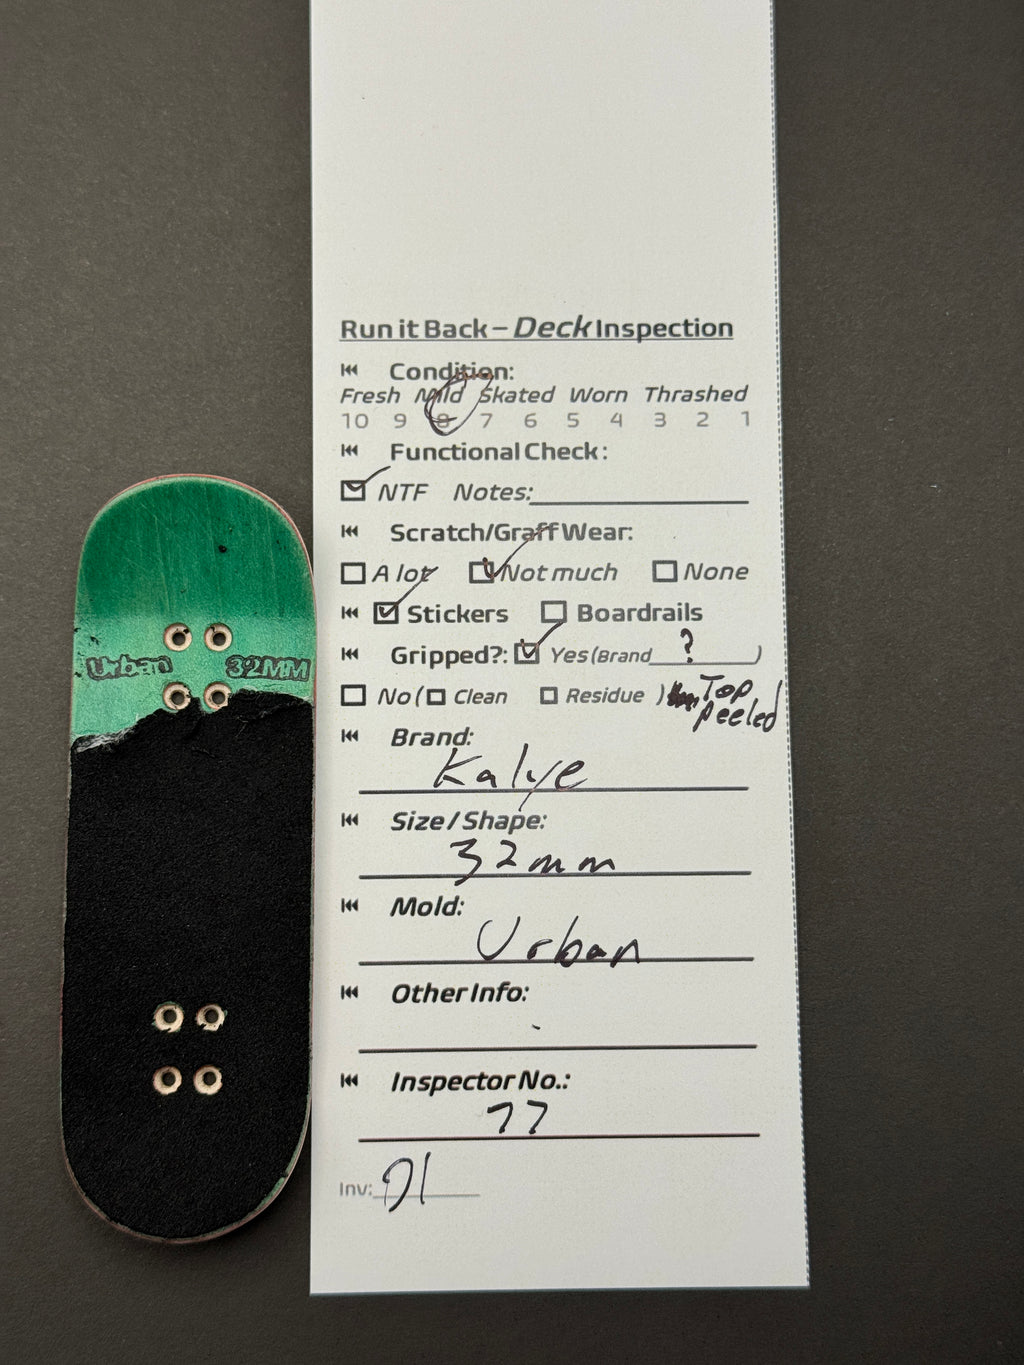 Run it Back – Deck Inspection
Condition:
Fresh Mild Skated Worn Thrashed
10 9 8 7 6 5 4 3 2 1
Functional Check:
NTF Notes:
Scratch/Graff Wear:
A lot Not much None
Stickers Boardrails
Gripped?: Yes (Brand ? )
No ( Clean Residue ) Top
peeled
Brand:
Kalye
Size / Shape:
32mm
Mold:
Urban
Other Info:
Inspector No.:
77
Inv:
Urban 32MM